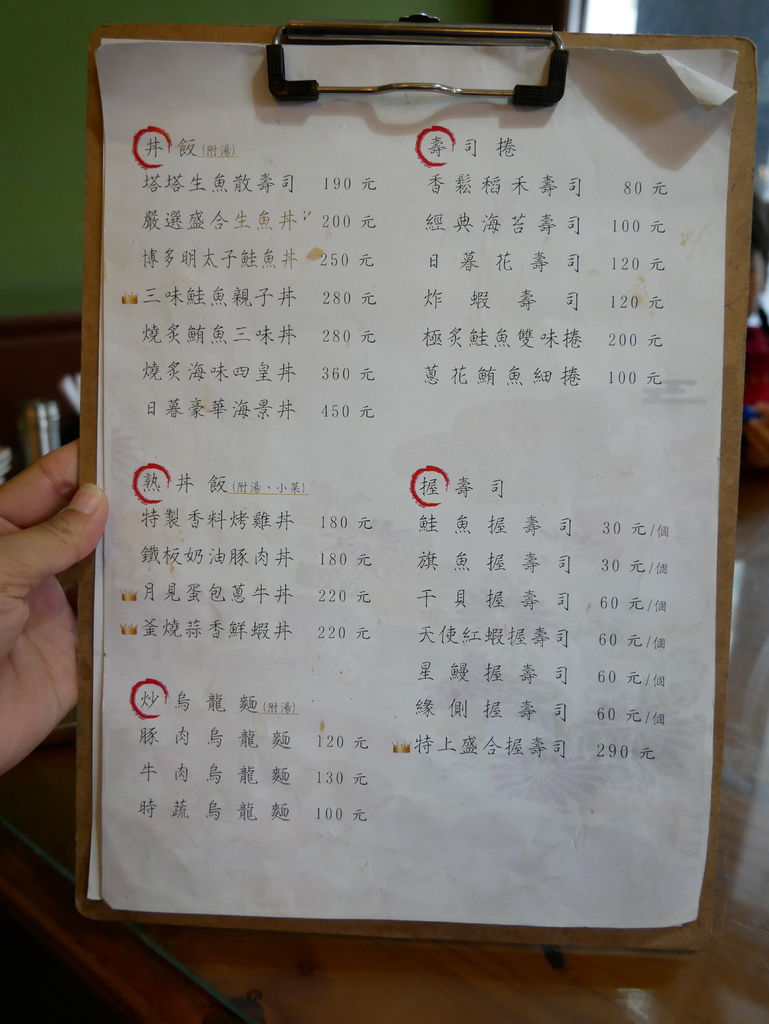 丼飯(附湯)
塔塔生魚散壽司 190 元
嚴選盛合生魚丼 200 元
博多明太子鮭魚丼 250 元
三味鮭魚親子丼 280 元
燒炙鮪魚三味丼 280 元
燒炙海味四皇丼 360 元
日暮豪華海景丼 450 元
熟丼飯(附湯、小菜)
特製香料烤雞丼 180 元
鐵板奶油豚肉丼 180 元
月見蛋包蔥牛丼 220 元
釜燒蒜香鮮蝦丼 220 元
炒烏龍麵(附湯)
豚肉烏龍麵 120 元
牛肉烏龍麵 130 元
時蔬烏龍麵 100 元
壽司捲
香鬆稻禾壽司 80 元
經典海苔壽司 100 元
日暮花壽司 120 元
炸蝦壽司 120 元
極炙鮭魚雙味捲 200 元
蔥花鮪魚細捲 100 元
握壽司
鮭魚握壽司 30 元/個
旗魚握壽司 30 元/個
干貝握壽司 60 元/個
天使紅蝦握壽司 60 元/個
星鰻握壽司 60 元/個
緣側握壽司 60 元/個
特上盛合握壽司 290 元